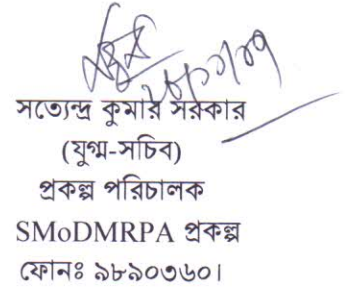 সত্যেন্দ্র কুমার সরকার
(যুগ্ম-সচিব)
প্রকল্প পরিচালক
SMoDMRPA প্রকল্প
ফোনঃ ৯৮৯০৩৬০।